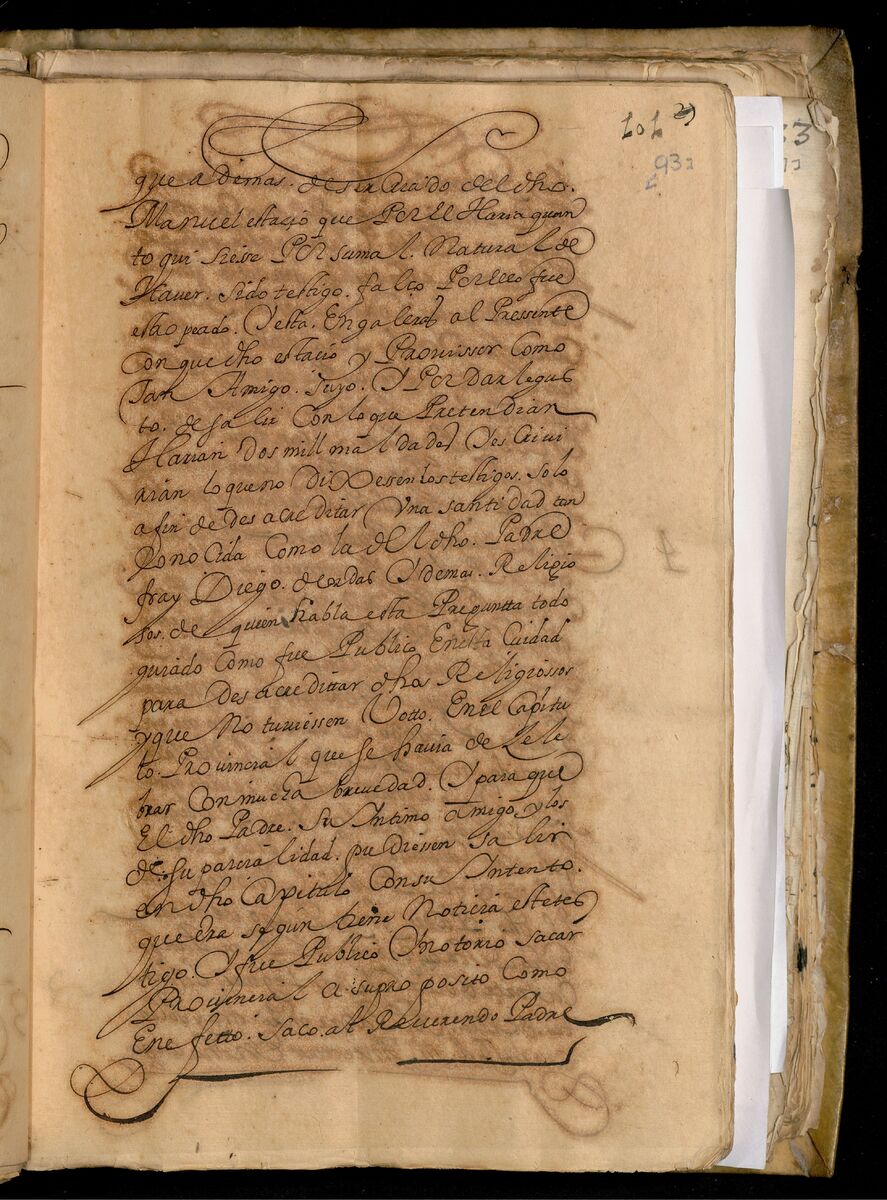 101
93
que a demas. de ser Criado del dho.
Manuel estacio que Por el Haria quan
to qui siese Por su mal. Natural de
Haver. sido testigo. falço Por ello fue
asto peado. Y esta. En galeras al Pressente
Con que dho estacio y Provissor Como
Tan Amigo. suyo. Y Por Dar le gus
to. de salir Con lo que Pretendian
Harian Dos mill mal dades Y es Crivi
rian lo que no Di Xesen los testigos. solo
a fin de des acreditar Una santidad tan
Conocida Como la del dho. Padre
fray Diego. de ordas Y demas. Religio
sos. de quien habla esta Pregunta todo
guiado Como fue Publico En esta Cuidad
para Des acredittar dhos Religiossos
y que No tuviessen Votto. En el Capitu
to. Provincial que se havia de Zele
brar Con mucha brevedad. Y para que
El dho Padre. su Intimo amigo y los
de su parcialidad. pudiessen salir
en dho Capitulo Con su Intento.
que era segun tiene Noticia este tes
tigo. Y fue Publico Y notorio sacar
Provincial a su pro posito Como
En efetto. saco. al Reverendo Padre